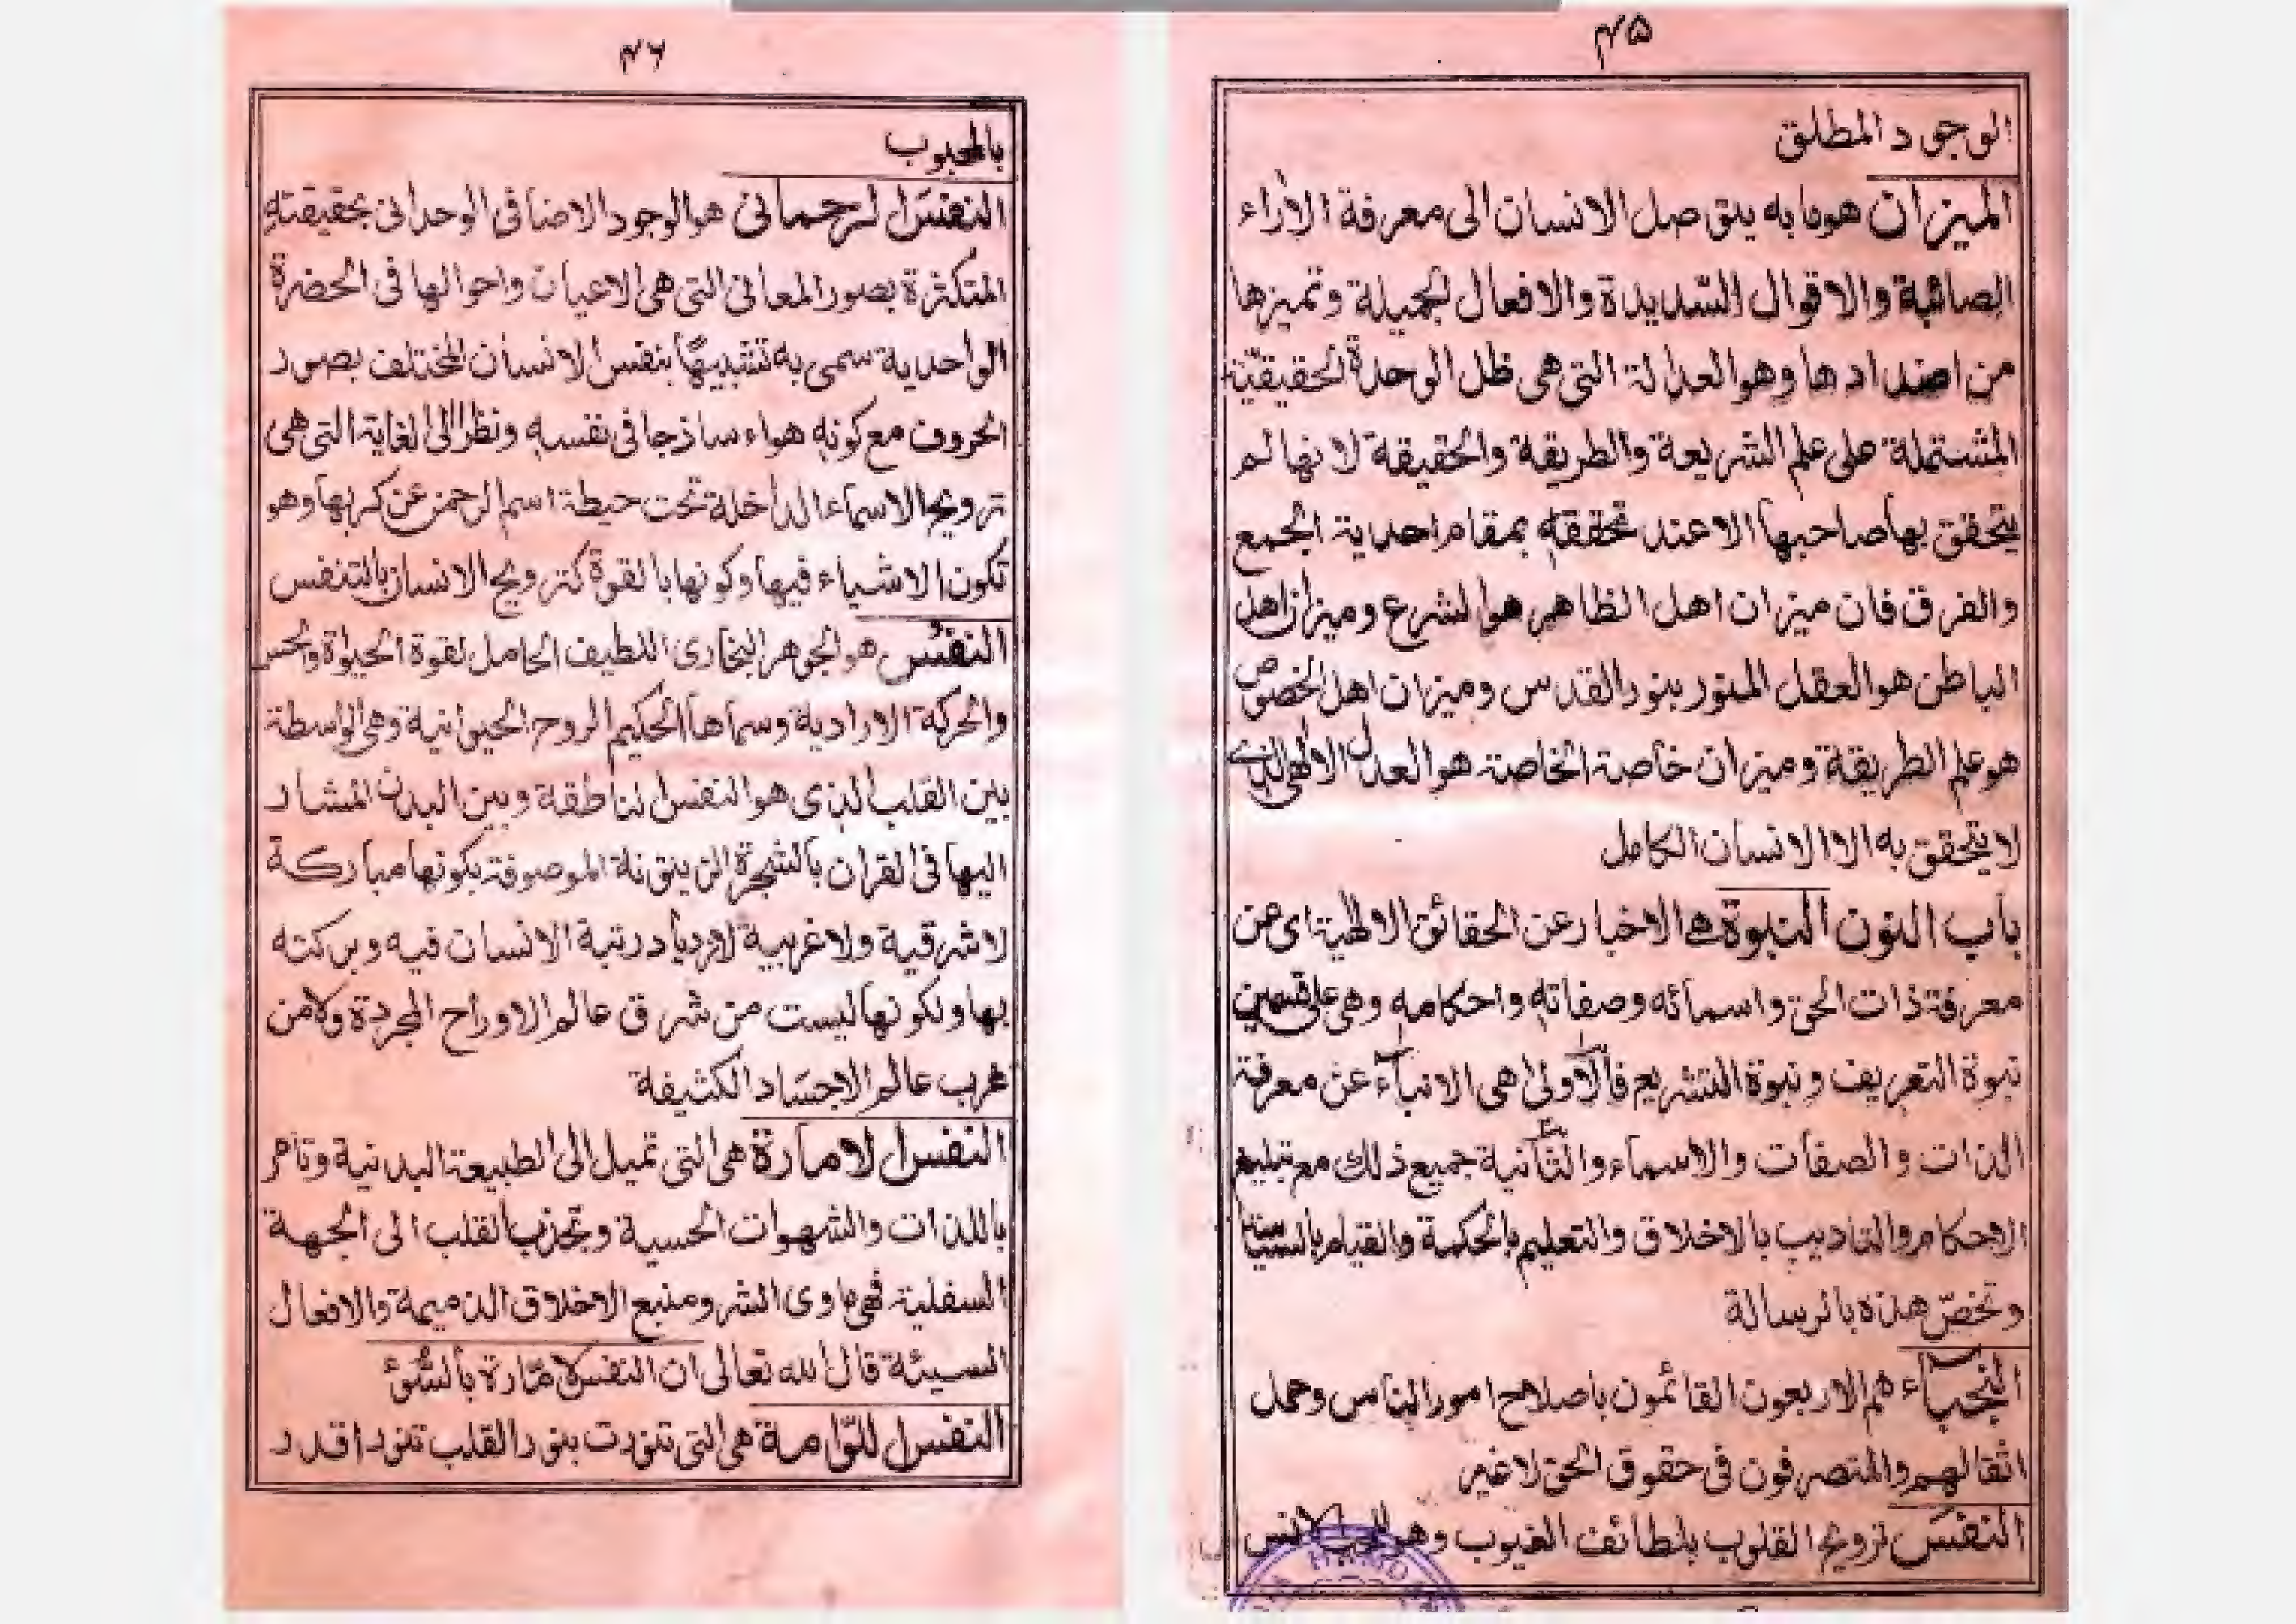 ۴۵
الوجود المطلق
الميزان هو ما به يتوصل الانسان الى معرفة الاراء
الصائبة والاقوال السّديدة والافعال الجميلة وتميزها
من اضدادها وهو العدالة التى هى ظل الوحدة الحقيقيّة
المشتملة على علم الشريعة والطريقة والحقيقة لانها لم
يتحقق بها صاحبها الا عند تحققه بمقام احدية الجمع
والفرق فان ميزان اهل الظاهر هو الشرع وميزان اهل
الباطن هو العقل المنور بنور القدس وميزان اهل الخصوص
هو علم الطريقة وميزان خاصة الخاصة هو العدل الالهى الذے
لا يتحقق به الا الانسان الكامل
باب النون النبوة هے الاخبار عن الحقائق الالهية اى عن
معرفة ذات الحق واسمائه وصفاته واحكامه وهى على قسمين
نبوة التعريف ونبوة التشريع فالاولى هى الانباء عن معرفة
الذات والصفات والاسماء والثانية جميع ذلك مع تبليغ
الاحكام والتاديب بالاخلاق والتعليم بالحكمة والقيام بالسياسة
وتخصّ هذه بالرسالة
النجباء هم الاربعون القائمون باصلاح امور الناس وحمل
اثقالهم والمتصرفون فى حقوق الحق لا غير
النفَس ترويح القلوب بلطائف الغيوب وهو للمحب الانس
۴۶
بالمحبوب
النفَس الرحمانى هو الوجود الاضافى الوحدانى بحقيقته
المتكثرة بصور المعانى التى هى الاعيان واحوالها فى الحضرة
الواحدية سمى به تشبيهًا بنفس الانسان المختلف بصور
الحروف مع كونه هواء ساذجا فى نفسه ونظرا الى الغاية التى هى
ترويح الاسماء الداخلة تحت حيطة اسم الرحمن عن كربها وهو
تكون الاشياء فيها وكونها بالقوة كترويح الانسان بالتنفس
النفْس هو الجوهر البخارى اللطيف الحامل لقوة الحيوة والحس
والحركة الارادية وسماها الحكيم الروح الحيوانية وهى الواسطة
بين القلب الذى هو النفس الناطقة وبين البدن المشار
اليها فى القران بالشجرة الزيتونة الموصوفة بكونها مباركة
لا شرقية ولا غربية لازدياد رتبة الانسان فيه وبركته
بها ولكونها ليست من شرق عالم الاوراح المجردة ولا من
غرب عالم الاجساد الكثيفة
النفس الامارة هى التى تميل الى الطبيعة البدنية وتامر
باللذات والشهوات الحسية وتجذب القلب الى الجهة
السفلية فهى ماوى الشر ومنبع الاخلاق الذميمة والافعال
السيئة قال الله تعالى ان النفس لامّارة بالسُّوْءِ
النفس اللوّامة هى التى تنورت بنور القلب تنورا قدر